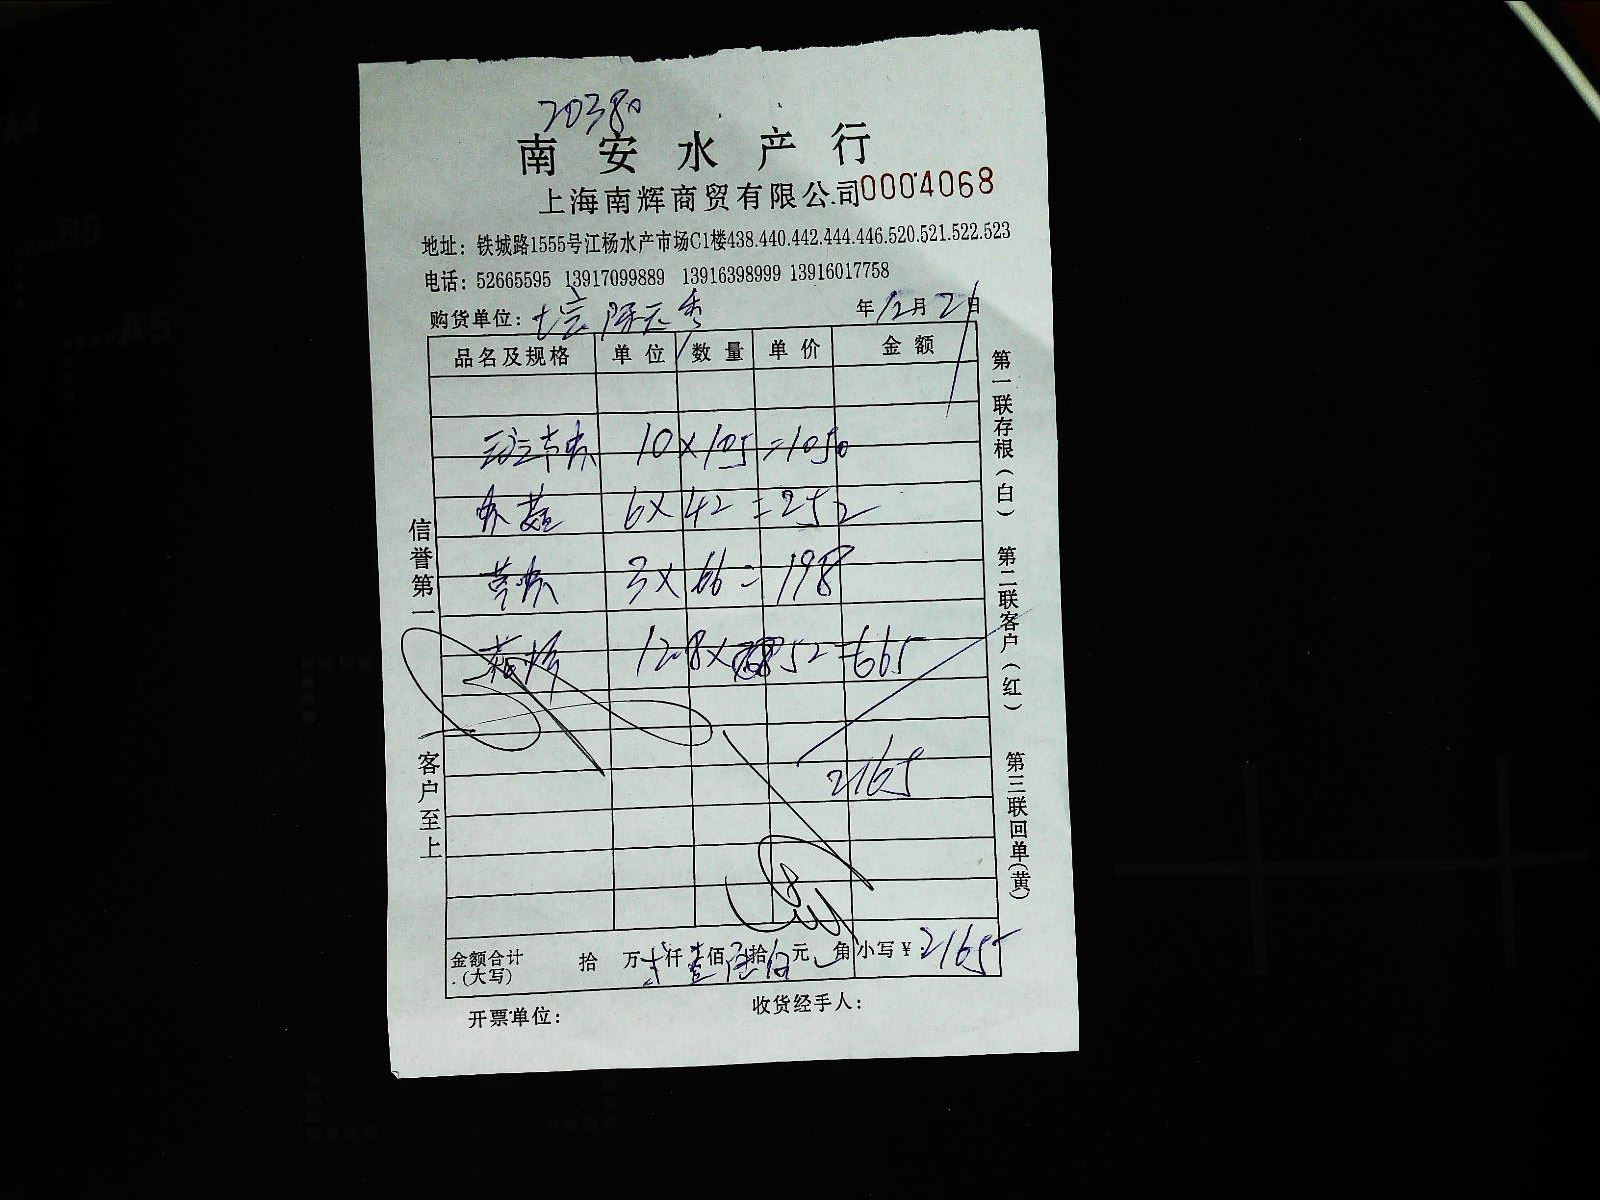 20380
南安水产行
上海南辉商贸有限公司0004068
地址：铁城路1555号江杨水产市场C1楼438.440.442.444.446.520.521.522.523
电话：52665595 13917099889 13916398999 13916017758
购货单位： 年12月21日
品名及规格 单位 数量 单价 金额
10×105=1050
6×42=252
3×66=198
12.8×52=665
2165
金额合计(大写) 拾 万 仟壹佰陆拾伍元 角 小写￥：2165
开票单位： 收货经手人：
信誉第一 客户至上
第一联存根（白） 第二联客户（红） 第三联回单（黄）